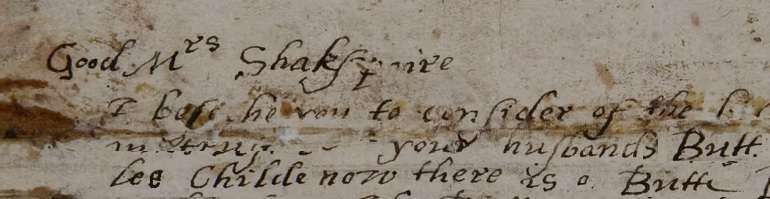 Good Mrs Shakspaire
I beseche you to consider of the
your husbands Butt
les Childe now there is a Butte